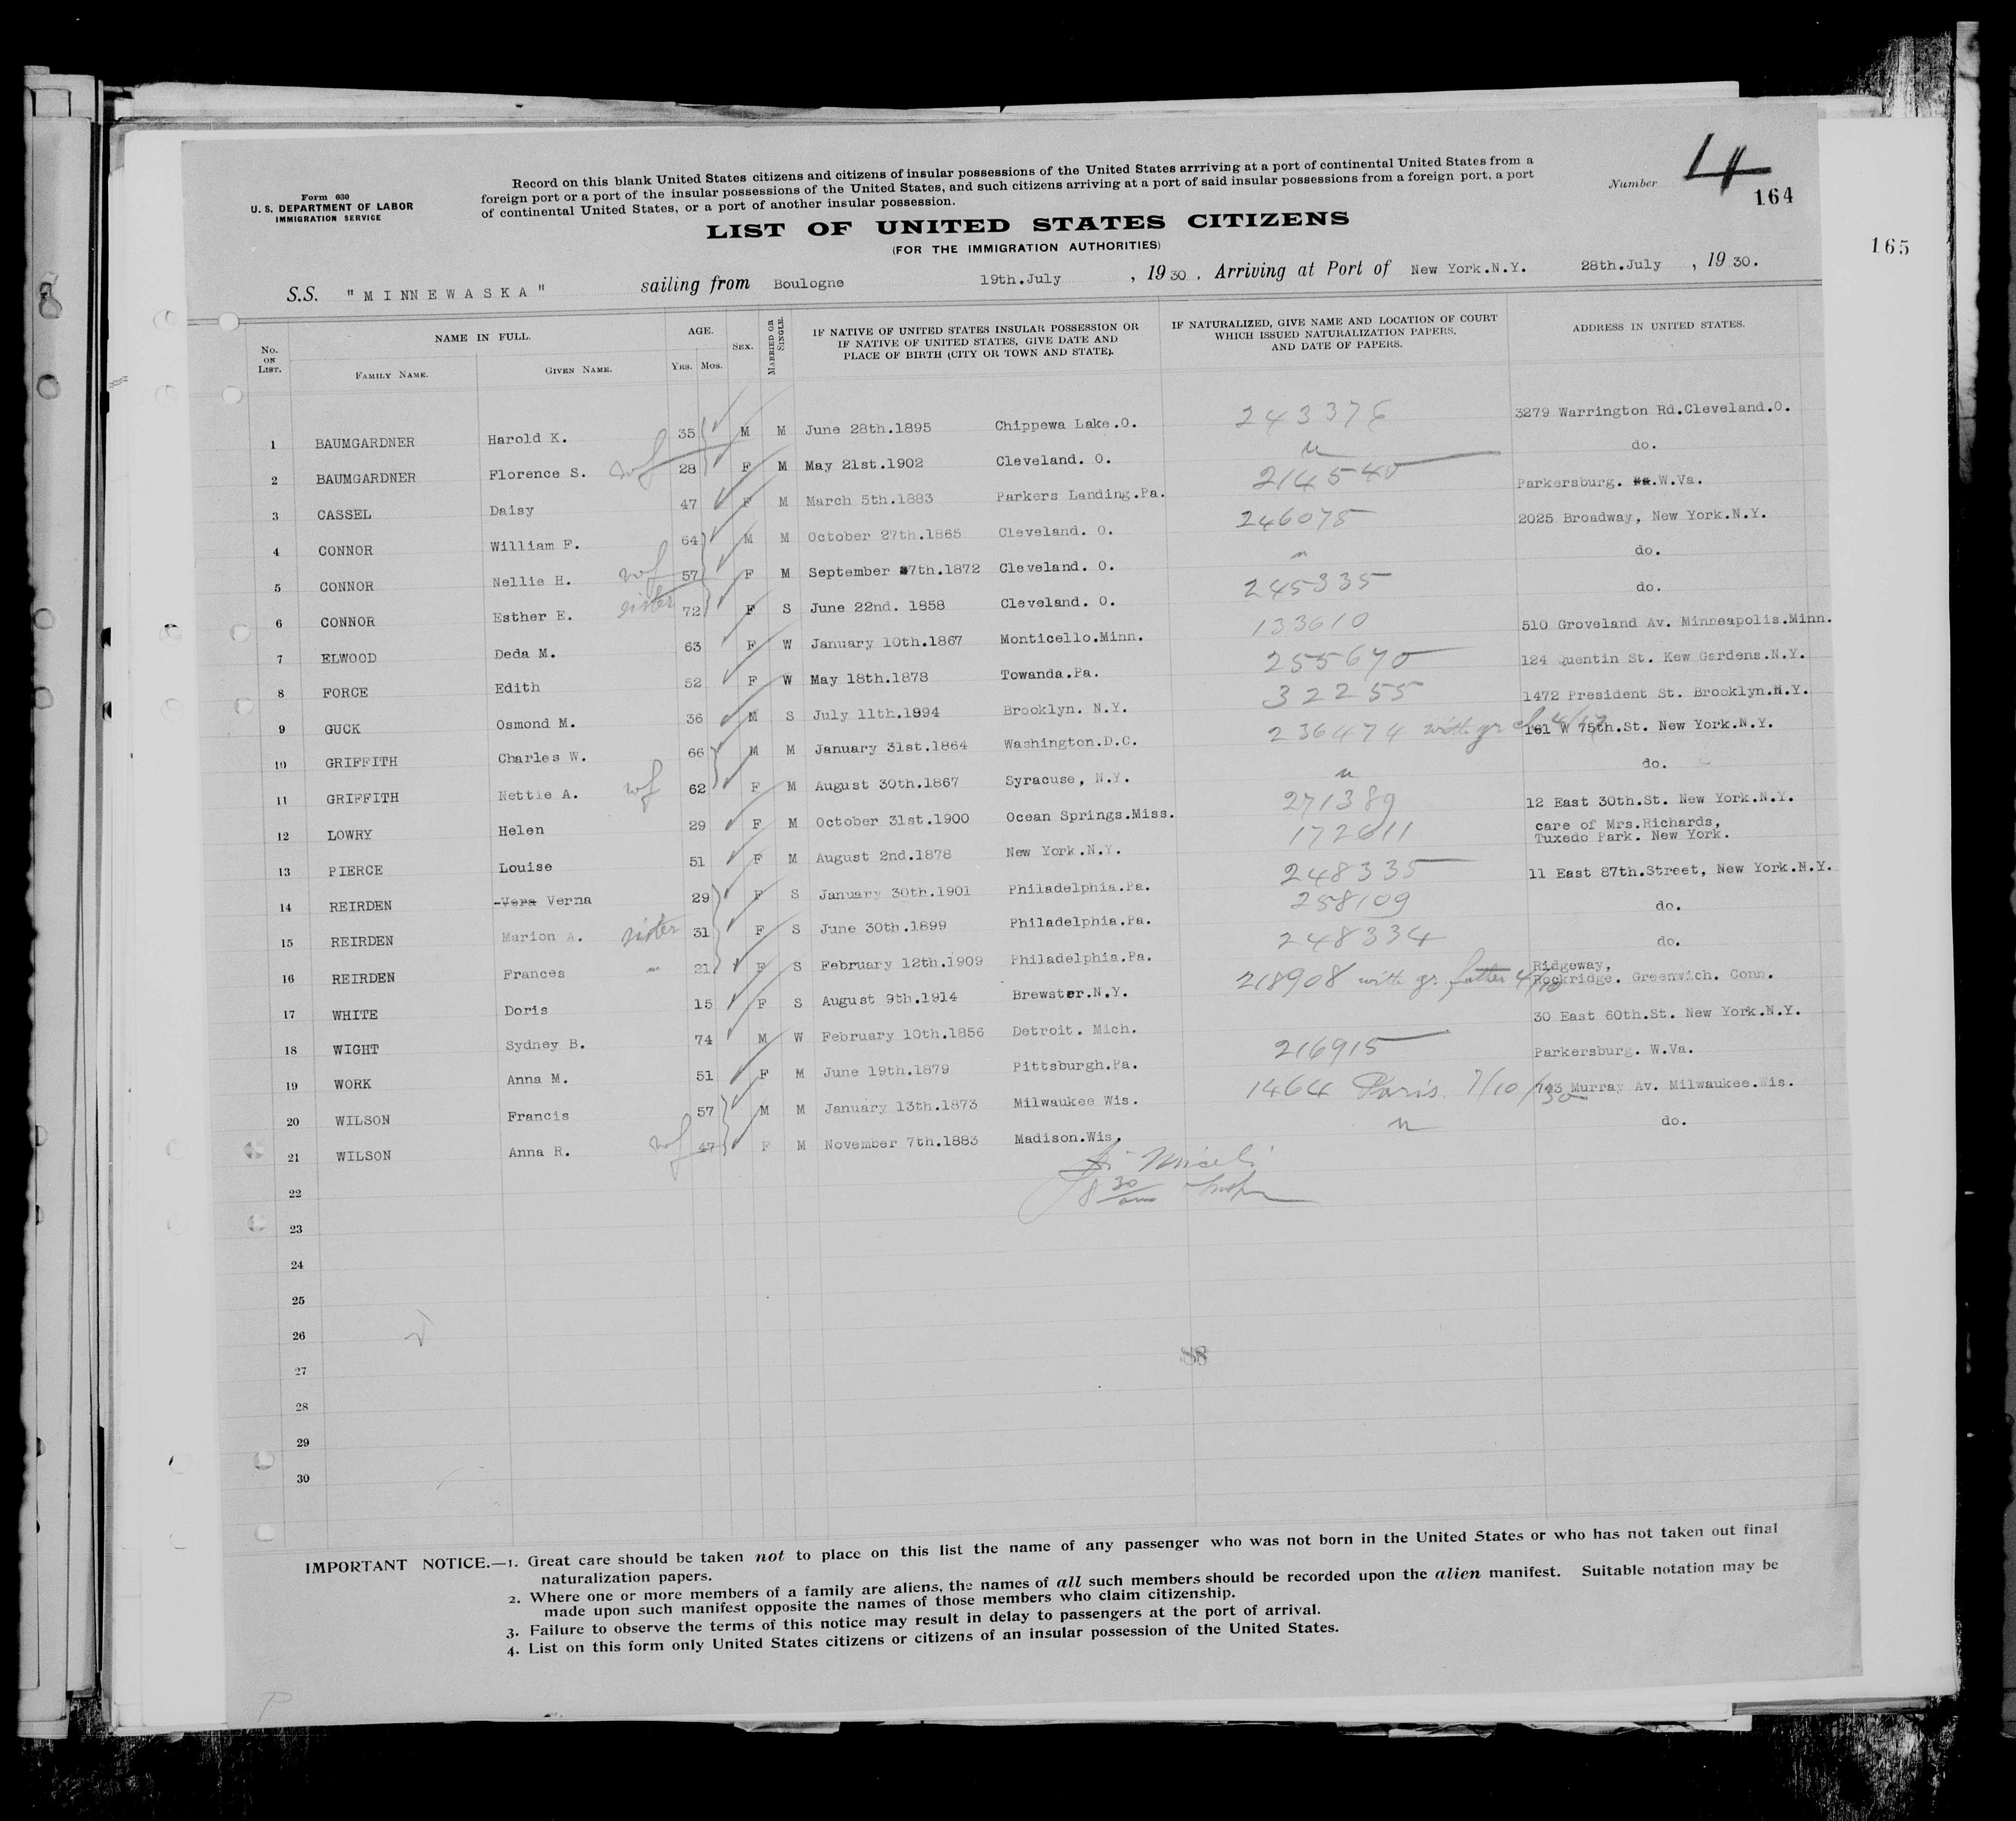 Form 630
U. S. DEPARTMENT OF LABOR
IMMIGRATION SERVICE
Record on this blank United States citizens and citizens of insular possessions of the United States arrriving at a port of continental United States from a
foreign port or a port of the insular possessions of the United States, and such citizens arriving at a port of said insular possessions from a foreign port, a port
of continental United States, or a port of another insular possession.
Number 4
164
165
LIST OF UNITED STATES CITIZENS
(FOR THE IMMIGRATION AUTHORITIES)
S.S. "MINNEWASKA" sailing from Boulogne 19th.July, 1930. Arriving at Port of New York.N.Y. 28th.July, 1930.
No. ON LIST. NAME IN FULL. FAMILY NAME. GIVEN NAME. AGE. YRS. MOS. SEX. MARRIED OR SINGLE. IF NATIVE OF UNITED STATES INSULAR POSSESSION OR IF NATIVE OF UNITED STATES, GIVE DATE AND PLACE OF BIRTH (CITY OR TOWN AND STATE). IF NATURALIZED, GIVE NAME AND LOCATION OF COURT WHICH ISSUED NATURALIZATION PAPERS, AND DATE OF PAPERS. ADDRESS IN UNITED STATES.
1 BAUMGARDNER Harold K. 35 M M June 28th.1895 Chippewa Lake.O. 243376 3279 Warrington Rd.Cleveland.O.
2 BAUMGARDNER Florence S. wf 28 F M May 21st.1902 Cleveland. O. " do.
3 CASSEL Daisy 47 F M March 5th.1883 Parkers Landing.Pa. 214540 Parkersburg. W.Va.
4 CONNOR William F. 64 M M October 27th.1865 Cleveland. O. 246075 2025 Broadway, New York.N.Y.
5 CONNOR Nellie H. wf 57 F M September 7th.1872 Cleveland. O. " do.
6 CONNOR Esther E. sister 72 F S June 22nd. 1858 Cleveland. O. 245335 do.
7 ELWOOD Deda M. 63 F W January 10th.1867 Monticello.Minn. 133610 510 Groveland Av. Minneapolis.Minn.
8 FORCE Edith 52 F W May 18th.1878 Towanda.Pa. 255670 124 Quentin St. Kew Gardens.N.Y.
9 GUCK Osmond M. 36 M S July 11th.1994 Brooklyn. N.Y. 32255 1472 President St. Brooklyn.N.Y.
10 GRIFFITH Charles W. 66 M M January 31st.1864 Washington.D.C. 236474 with gr 161 W 75th.St. New York.N.Y.
11 GRIFFITH Nettie A. wf 62 F M August 30th.1867 Syracuse, N.Y. " do.
12 LOWRY Helen 29 F M October 31st.1900 Ocean Springs.Miss. 271389 12 East 30th.St. New York.N.Y.
13 PIERCE Louise 51 F M August 2nd.1878 New York.N.Y. 172611 care of Mrs.Richards, Tuxedo Park. New York.
14 REIRDEN Vera Verna 29 F S January 30th.1901 Philadelphia.Pa. 248335 11 East 87th.Street, New York.N.Y.
15 REIRDEN Marion A. sister 31 F S June 30th.1899 Philadelphia.Pa. 258109 do.
16 REIRDEN Frances " 21 F S February 12th.1909 Philadelphia.Pa. 248334 do.
17 WHITE Doris 15 F S August 9th.1914 Brewster.N.Y. 218908 with gr father Ridgeway, Rockridge. Greenwich. Conn.
18 WIGHT Sydney B. 74 M W February 10th.1856 Detroit. Mich. 30 East 60th.St. New York.N.Y.
19 WORK Anna M. 51 F M June 19th.1879 Pittsburgh.Pa. 216915 Parkersburg. W.Va.
20 WILSON Francis 57 M M January 13th.1873 Milwaukee Wis. 1464 Paris. 7/10/30 743 Murray Av. Milwaukee.Wis.
21 WILSON Anna R. wf 47 F M November 7th.1883 Madison.Wis. " do.
22
8 30
23
24
25
26
27
28
29
30
IMPORTANT NOTICE.—1. Great care should be taken not to place on this list the name of any passenger who was not born in the United States or who has not taken out final
naturalization papers.
2. Where one or more members of a family are aliens, the names of all such members should be recorded upon the alien manifest. Suitable notation may be
made upon such manifest opposite the names of those members who claim citizenship.
3. Failure to observe the terms of this notice may result in delay to passengers at the port of arrival.
4. List on this form only United States citizens or citizens of an insular possession of the United States.